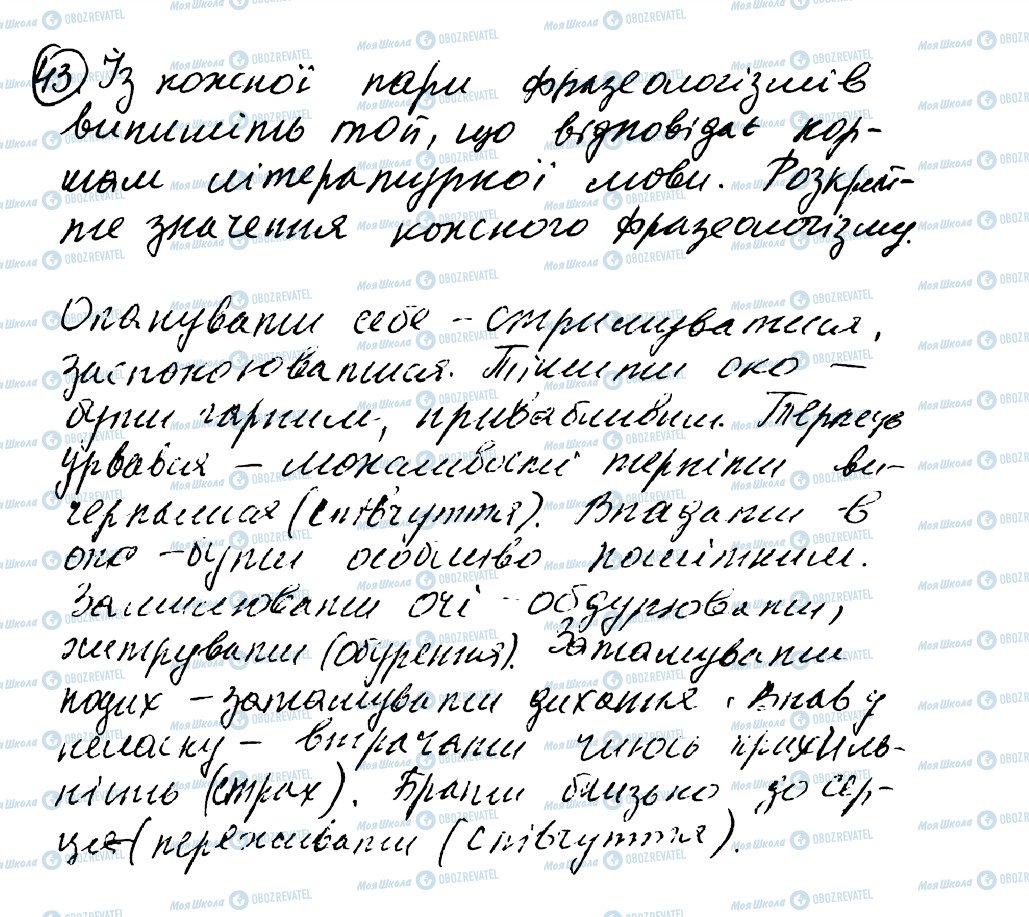 43. Із кожної пари фразеологізмів
випишіть той, що відповідає нор-
мам літературної мови. Розкрий-
те значення кожного фразеологізму.
Опанувати себе - стримуватися,
заспокоюватися. Тішити око -
бути гарним, привабливим. Терпець
урвався - можливості терпіти ви-
черпалися (співчуття). Впадати в
око - бути особливо помітним.
Замилювати очі - обдурювати,
хитрувати (обурення). Затамувати
подих - затамувати дихання. Впав у
неласку - втрачати чиюсь прихиль-
ність (страх). Брати близько до сер-
ця - (переживати (співчуття).